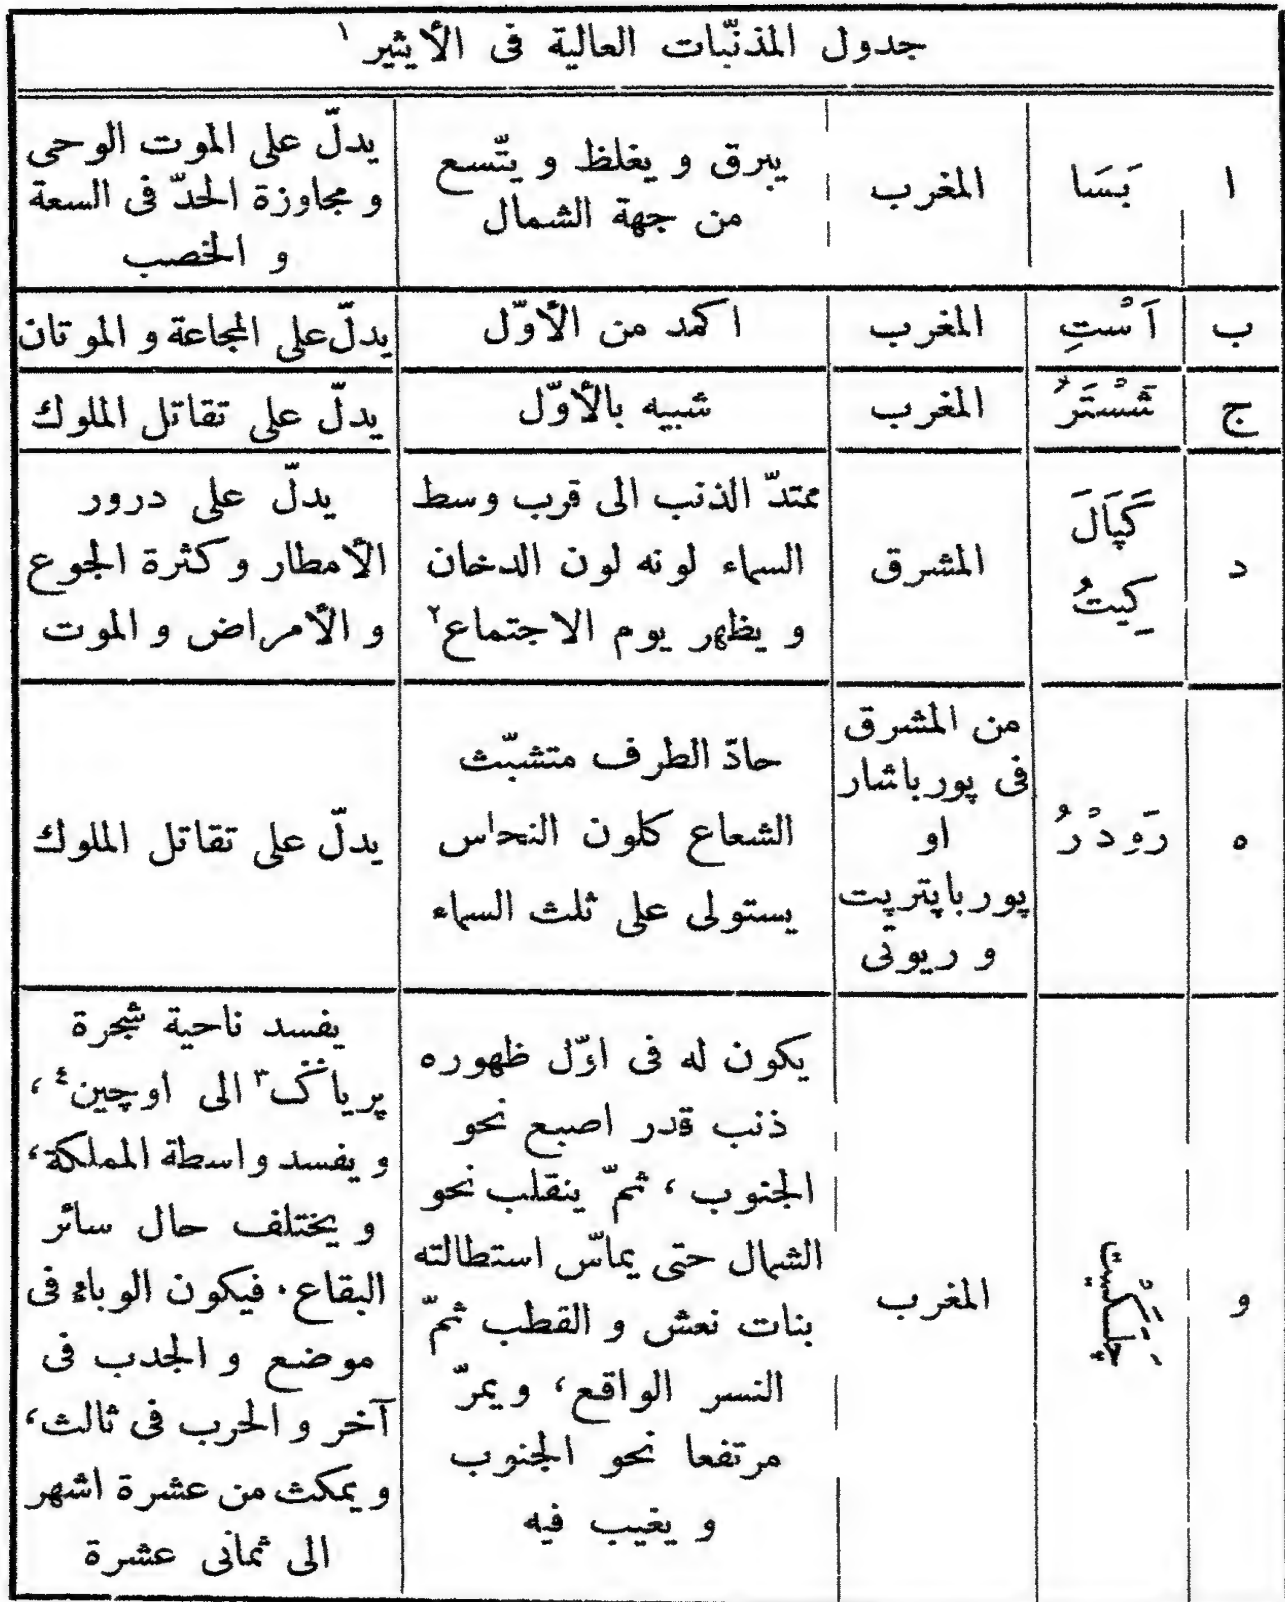 جدول المذنّبات العالية فى الأيثير ١
ا
بَسَا
المغرب
يبرق و يغلظ و يتّسع
من جهة الشمال
يدلّ على الموت الوحى
و مجاوزة الحدّ فى السعة
و الخصب
ب
آسْتِ
المغرب
اكمد من الأوّل
يدلّ على المجاعة و الموتان
ج
شَسْتَرُ
المغرب
شبيه بالأوّل
يدلّ على تقاتل الملوك
د
كَپَالَ
كِيتُ
المشرق
ممتدّ الذنب الى قرب وسط
السماء لونه لون الدخان
و يظهر يوم الاجتماع ٢
يدلّ على درور
الأمطار و كثرة الجوع
و الأمراض و الموت
ه
رَودْرُ
من المشرق
فى پورباشار
او
پورباپتريت
و ريوتى
حادّ الطرف متشبّث
الشعاع كلون النحاس
يستولى على ثلث السماء
يدلّ على تقاتل الملوك
و
چلَكيتُ
المغرب
يكون له فى اوّل ظهوره
ذنب قدر اصبع نحو
الجنوب، ثمّ ينقلب نحو
الشمال حتى يماسّ استطالته
بنات نعش و القطب ثمّ
النسر الواقع، و يمرّ
مرتفعا نحو الجنوب
و يغيب فيه
يفسد ناحية شجرة
پرياڭ ٣ الى اوچين ٤،
و يفسد واسطة المملكة،
و يختلف حال سائر
البقاع. فيكون الوباء فى
موضع و الجدب فى
آخر و الحرب فى ثالث،
و يمكث من عشرة اشهر
الى ثمانى عشرة